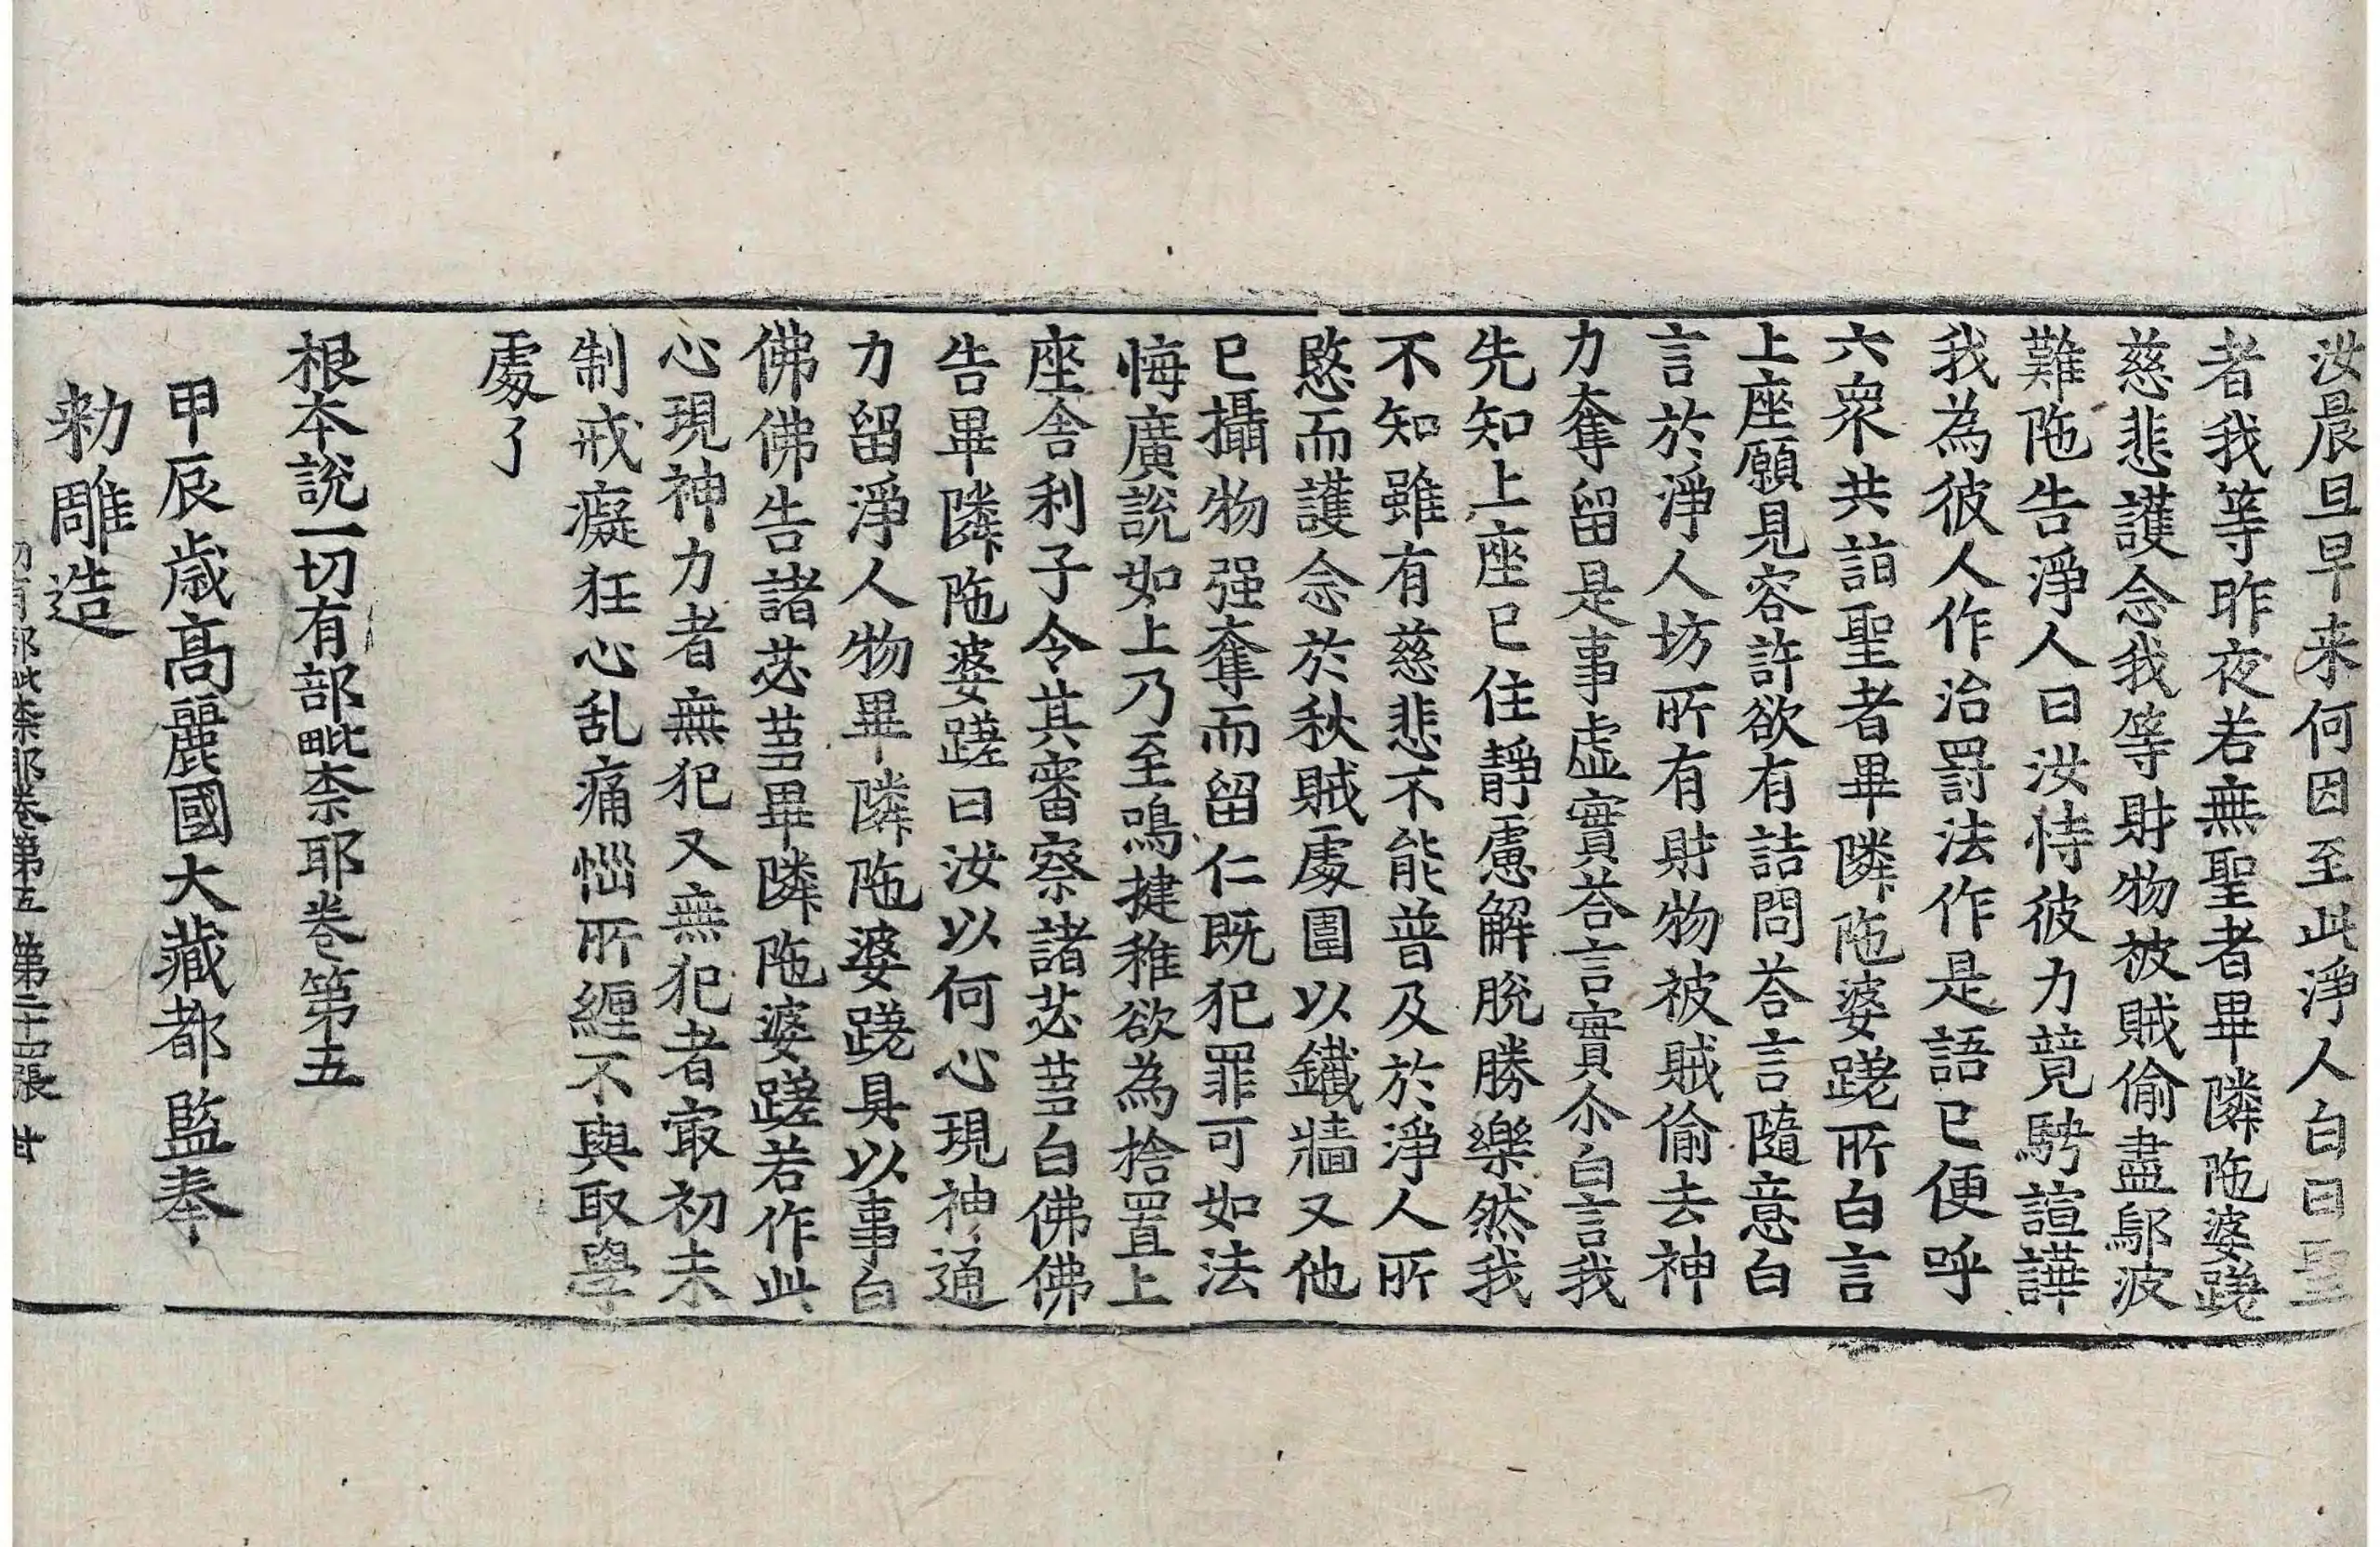 汝晨旦早来何因至此淨人白曰聖
者我等昨夜若無聖者畢隣陁婆蹉
慈悲護念我等財物被賊偷盡鄔波
難陁告淨人曰汝恃彼力競騁諠譁
我為彼人作治罰法作是語已便呼
六衆共詣聖者畢隣陁婆蹉所白言
上座願見容許欲有詰問荅言隨意白
言於淨人坊所有財物被賊偷去神
力奪留是事虛實荅言實尒白言我
先知上座已住靜慮解脫勝樂然我
不知雖有慈悲不能普及於淨人所
愍而護念於秋賊處圍以鐵牆又他
已攝物强奪而留仁既犯罪可如法
悔廣說如上乃至鳴揵稚欲為捨置上
座舍利子令其審察諸苾芻白佛佛
告畢隣陁婆蹉曰汝以何心現神通
力留淨人物畢隣陁婆蹉具以事白
佛佛告諸苾芻畢隣陁婆蹉若作此
心現神力者無犯又無犯者冣初未
制戒癡狂心乱痛惱所纒不與取學
處了
根本說一切有部毗柰耶卷第五
甲辰歳高麗國大藏都監奉
勑雕造
切有部毗柰耶卷第五 第二十四張 甘